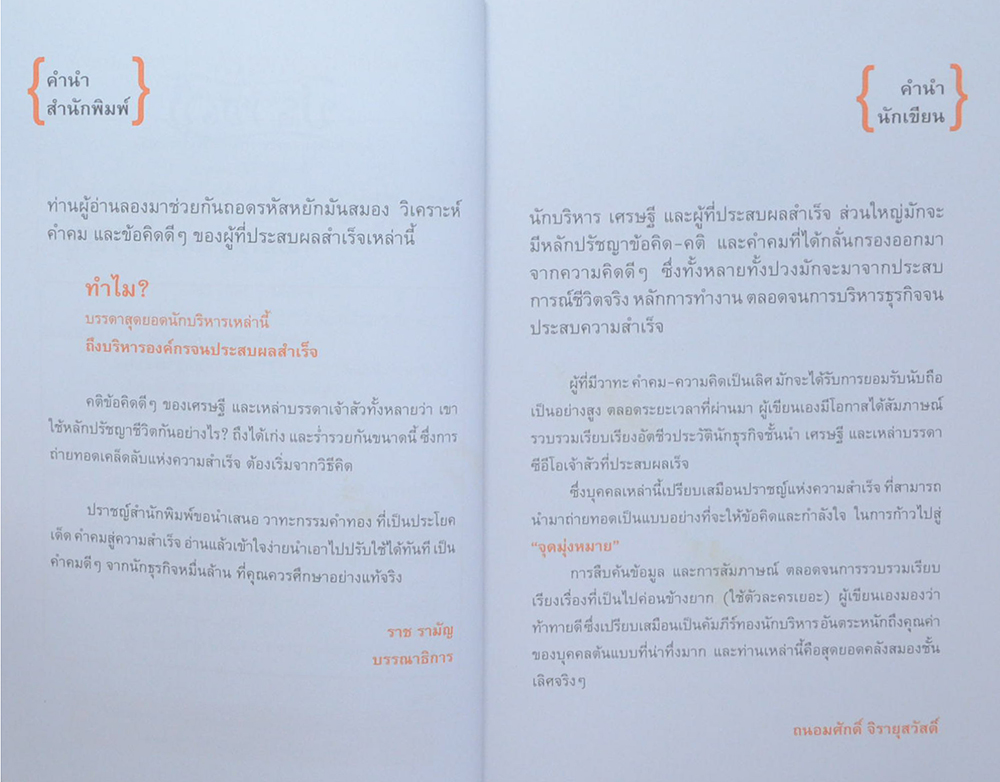 คำนำ
สำนักพิมพ์
ท่านผู้อ่านลองมาช่วยกันถอดรหัสหยักมันสมอง วิเคราะห์
คำคม และข้อคิดดีๆ ของผู้ที่ประสบผลสำเร็จเหล่านี้
ทำไม?
บรรดาสุดยอดนักบริหารเหล่านี้
ถึงบริหารองค์กรจนประสบผลสำเร็จ
คติข้อคิดดีๆ ของเศรษฐี และเหล่าบรรดาเจ้าสัวทั้งหลายว่า เขา
ใช้หลักปรัชญาชีวิตกันอย่างไร? ถึงได้เก่ง และร่ำรวยกันขนาดนี้ ซึ่งการ
ถ่ายทอดเคล็ดลับแห่งความสำเร็จ ต้องเริ่มจากวิธีคิด
ปราชญ์สำนักพิมพ์ขอนำเสนอ วาทะกรรมคำทอง ที่เป็นประโยค
เด็ด คำคมสู่ความสำเร็จ อ่านแล้วเข้าใจง่ายนำเอาไปปรับใช้ได้ทันที เป็น
คำคมดีๆ จากนักธุรกิจหมื่นล้าน ที่คุณควรศึกษาอย่างแท้จริง
ราช รามัญ
บรรณาธิการ
คำนำ
นักเขียน
นักบริหาร เศรษฐี และผู้ที่ประสบผลสำเร็จ ส่วนใหญ่มักจะ
มีหลักปรัชญาข้อคิด-คติ และคำคมที่ได้กลั่นกรองออกมา
จากความคิดดีๆ ซึ่งทั้งหลายทั้งปวงมักจะมาจากประสบ
การณ์ชีวิตจริง หลักการทำงาน ตลอดจนการบริหารธุรกิจจน
ประสบความสำเร็จ
ผู้ที่มีวาทะ คำคม-ความคิดเป็นเลิศ มักจะได้รับการยอมรับนับถือ
เป็นอย่างสูง ตลอดระยะเวลาที่ผ่านมา ผู้เขียนเองมีโอกาสได้สัมภาษณ์
รวบรวมเรียบเรียงอัตชีวประวัตินักธุรกิจชั้นนำ เศรษฐี และเหล่าบรรดา
ซีอีโอเจ้าสัวที่ประสบผลเร็จ
ซึ่งบุคคลเหล่านี้เปรียบเสมือนปราชญ์แห่งความสำเร็จ ที่สามารถ
นำมาถ่ายทอดเป็นแบบอย่างที่จะให้ข้อคิดและกำลังใจ ในการก้าวไปสู่
“จุดมุ่งหมาย”
การสืบค้นข้อมูล และการสัมภาษณ์ ตลอดจนการรวบรวมเรียบ
เรียงเรื่องที่เป็นไปค่อนข้างยาก (ใช้ตัวละครเยอะ) ผู้เขียนเองมองว่า
ท้าทายดีซึ่งเปรียบเสมือนเป็นคัมภีร์ทองนักบริหารอันตระหนักถึงคุณค่า
ของบุคคลต้นแบบที่น่าทึ่งมาก และท่านเหล่านี้คือสุดยอดคลังสมองชั้น
เลิศจริงๆ
ถนอมศักดิ์ จิรายุสวัสดิ์